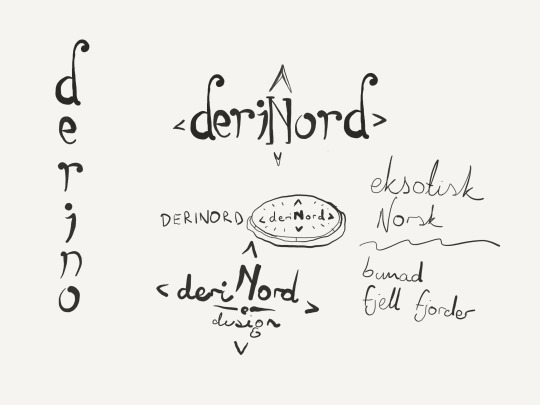 d
e
r
i
n
o
<deriNord>
eksotisk
Norsk
DERINORD
<deriNord>
bunad
fjell fjorder
<deriNord>
design